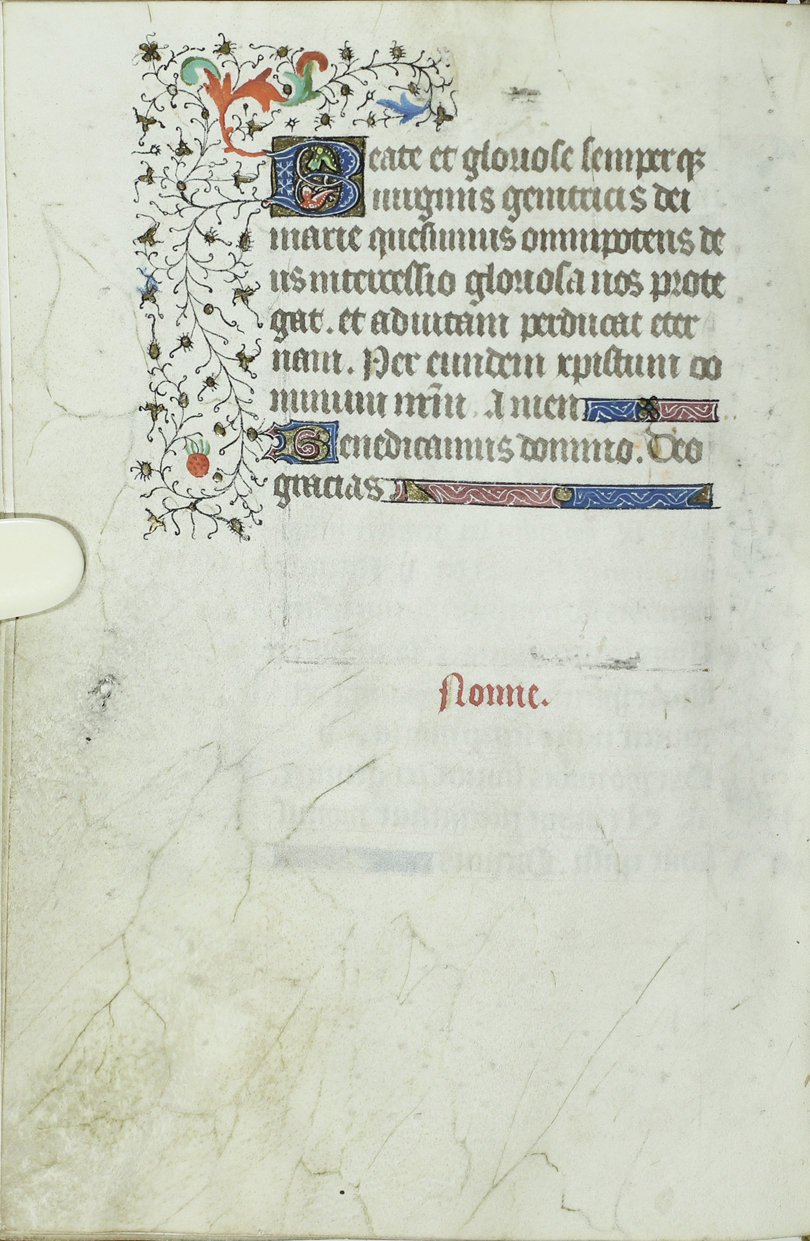 Beate et gloriose semperq̄
virginis genitricis dei
marie quesumus omnipotens de
us intercessio gloriosa nos prote
gat. et ad vitam perducat eter
nam. Per eundem xpistum do
minum nr̄m Amen
Benedicamus domino. Deo
gracias
Nonne.